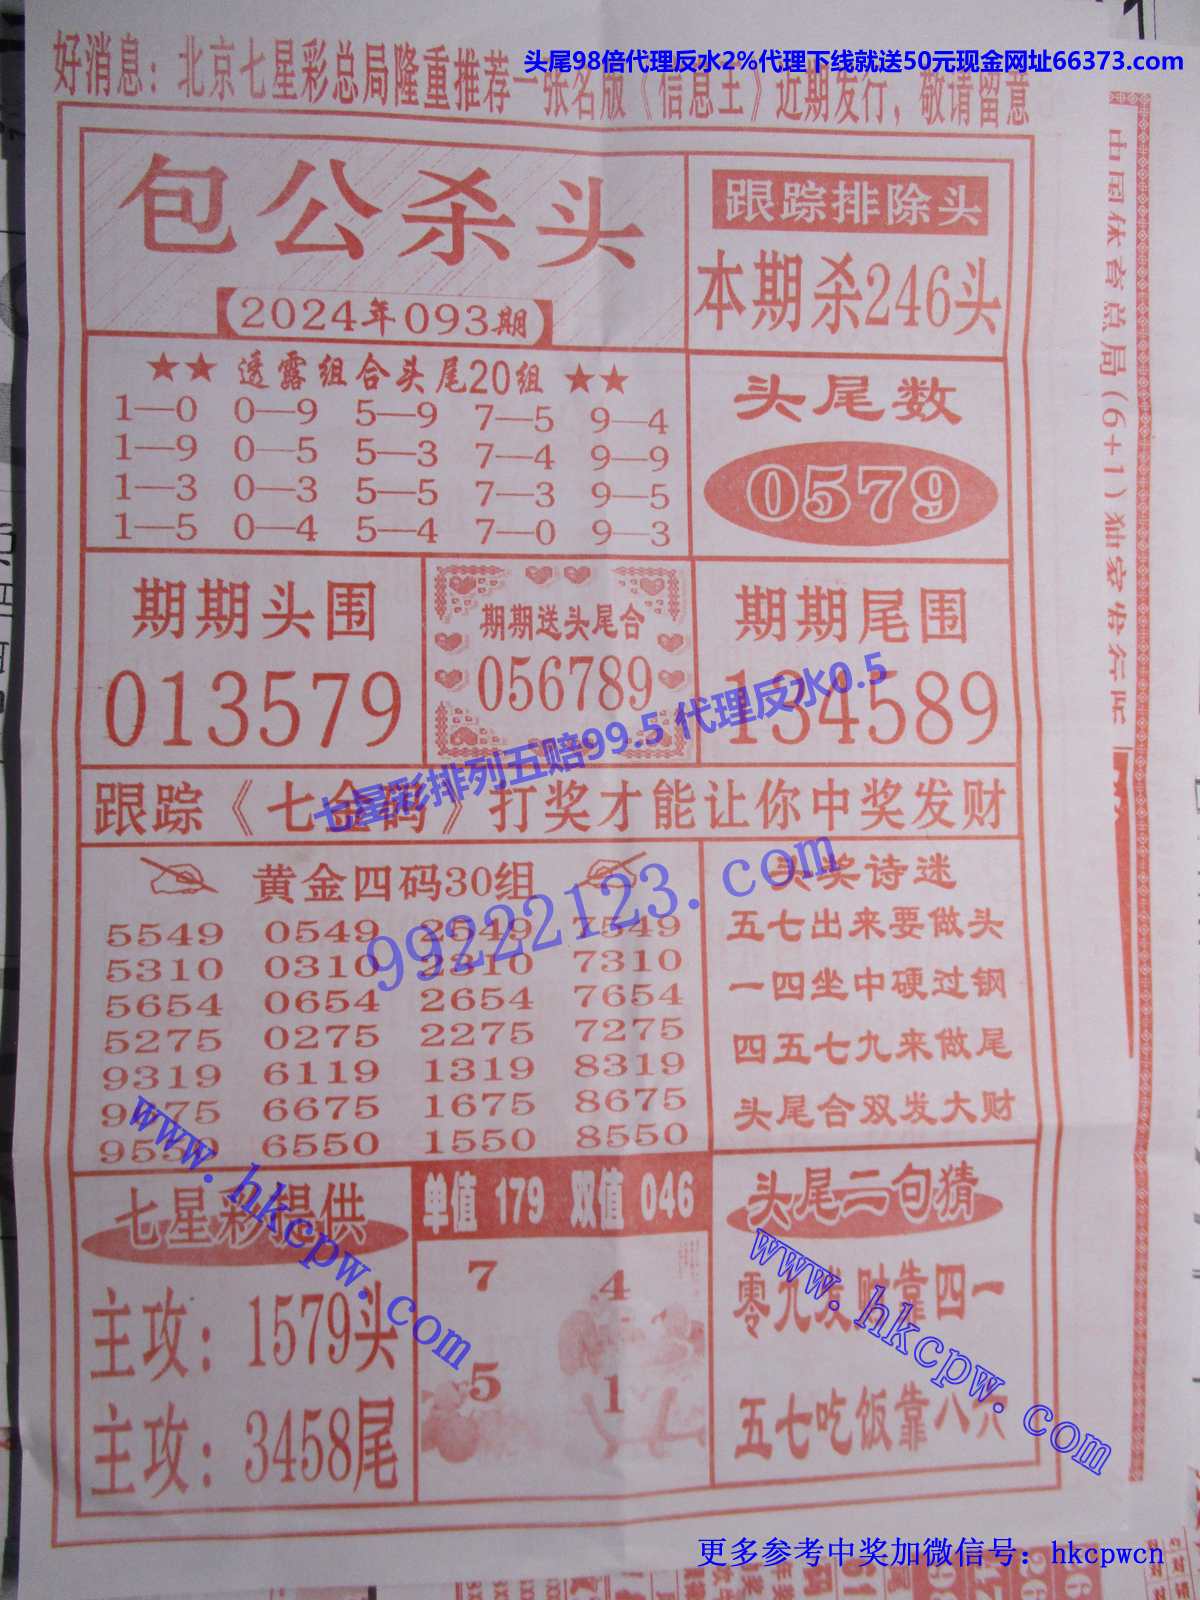 头尾98倍代理反水2%代理下线就送50元现金网址66373.com
好消息：北京七星彩总局隆重推荐一张名版《信息王》近期发行，敬请留意
包公杀头
【2024年093期】
跟踪排除头
本期杀246头
★★ 透露组合头尾20组 ★★
1—0 0—9 5—9 7—5 9—4
1—9 0—5 5—3 7—4 9—9
1—3 0—3 5—5 7—3 9—5
1—5 0—4 5—4 7—0 9—3
头尾数
0579
期期头围
013579
期期送头尾合
056789
期期尾围
134589
七星彩排列五赔99.5 代理反水0.5
跟踪《七金码》打奖才能让你中奖发财
黄金四码30组
5549 0549 2549 7549
5310 0310 2310 7310
5654 0654 2654 7654
5275 0275 2275 7275
9319 6119 1319 8319
6675 1675 8675
6550 1550 8550
99222123.com
头奖诗迷
五七出来要做头
一四坐中硬过钢
四五七九来做尾
头尾合双发大财
七星彩提供
主攻：1579头
主攻：3458尾
www.hkcpw.com
单值 179 双值 046
7 4
5 1
头尾二句猜
零九发财靠四一
五七吃饭靠八六
www.hkcpw.com
中国体育总局(6+1)独家发行
更多参考中奖加微信号：hkcpwcn